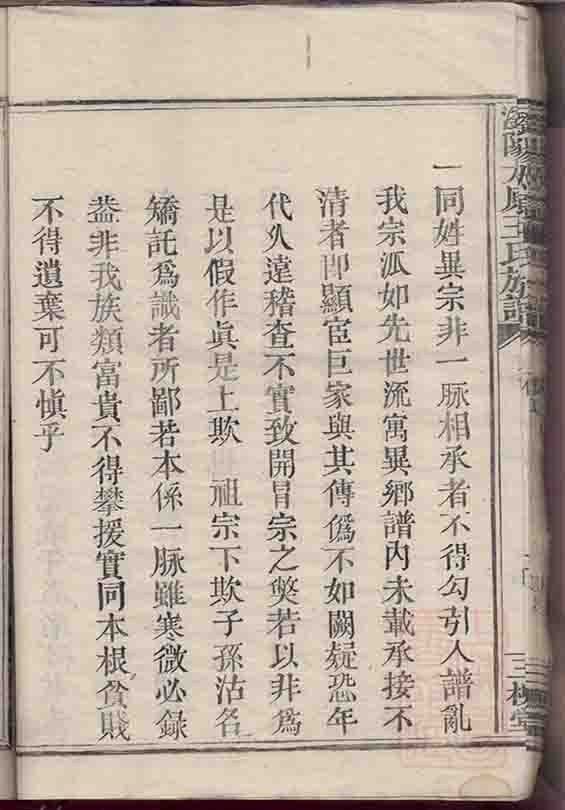 瀏陽 王氏族譜
三槐堂
一同姓異宗非一脉相承者不得勾引入譜亂
我宗派如先世流寓異鄉譜內未載承接不
清者即顯宦巨家與其傳偽不如闕疑恐年
代久遠稽查不實致開冒宗之獘若以非為
是以假作眞是上欺 祖宗下欺子孫沽名
矯託為識者所鄙若本係一脉雖寒微必錄
葢非我族類富貴不得攀援實同本根貧賤
不得遺棄可不愼乎